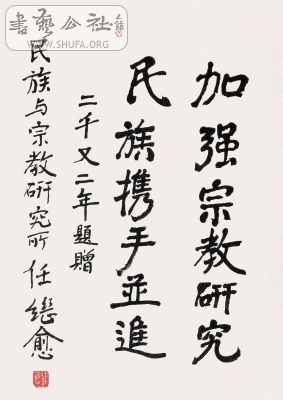 加强宗教研究
民族携手並進
二千又二年題贈
民族与宗教研究所 任继愈
書藝公社
WWW.SHUFA.ORG